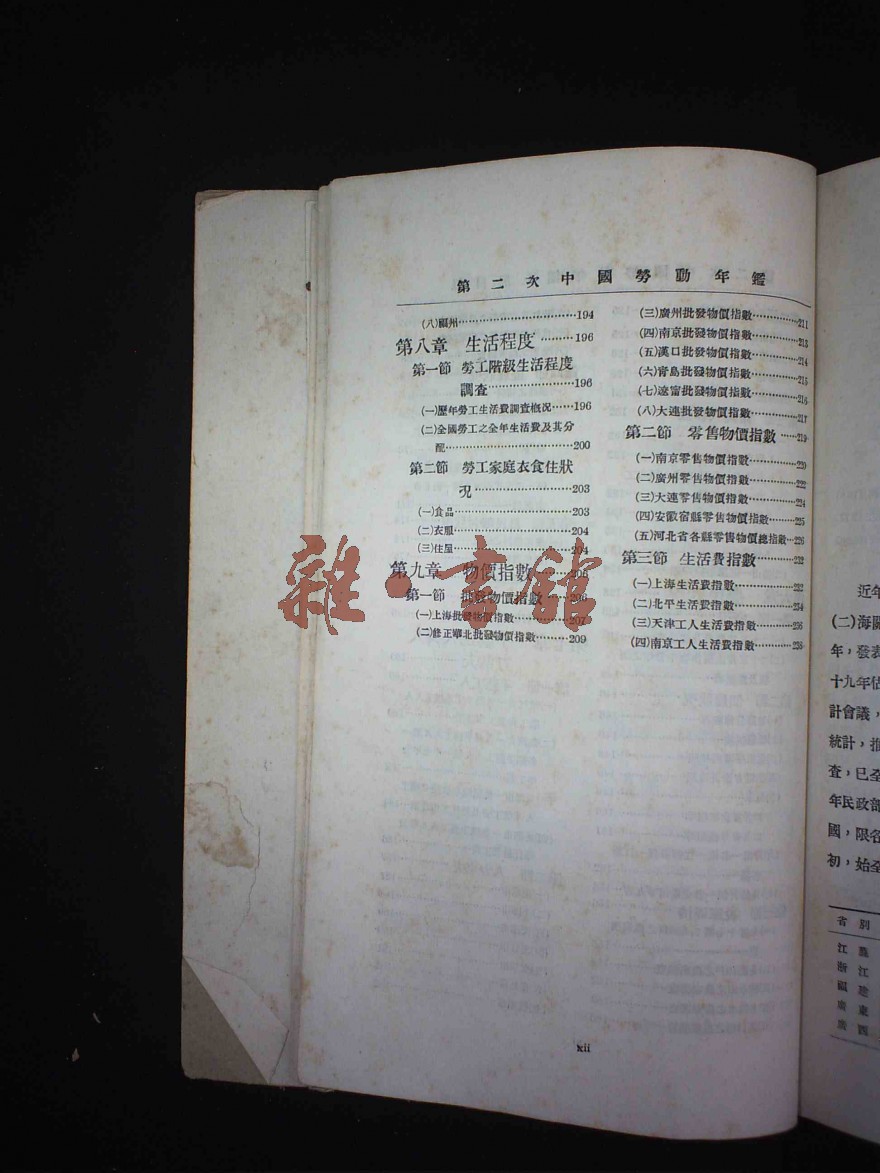 第二次中國勞動年鑑
(八)福州……194
第八章 生活程度……196
第一節 勞工階級生活程度
調查……196
(一)歷年勞工生活費調查概況……196
(二)全國勞工之全年生活費及其分
配……200
第二節 勞工家庭衣食住狀
況……203
(一)食品……203
(二)衣服……204
(三)住屋……204
第九章 物價指數……206
第一節 批發物價指數……206
(一)上海批發物價指數……207
(二)修正華北批發物價指數……209
(三)廣州批發物價指數……211
(四)南京批發物價指數……213
(五)漢口批發物價指數……214
(六)青島批發物價指數……215
(七)遼甯批發物價指數……216
(八)大連批發物價指數……217
第二節 零售物價指數……219
(一)南京零售物價指數……220
(二)廣州零售物價指數……222
(三)大連零售物價指數……224
(四)安徽宿縣零售物價指數……225
(五)河北省各縣零售物價總指數…226
第三節 生活費指數……232
(一)上海生活費指數……232
(二)北平生活費指數……234
(三)天津工人生活費指數……236
(四)南京工人生活費指數……238
xii
雜·書館
近年
(二)海關
年,發表
十九年估
計會議,
統計,推
查,已全
年民政部
國,限各
初,始全
省別
江蘇
浙江
福建
廣東
廣西